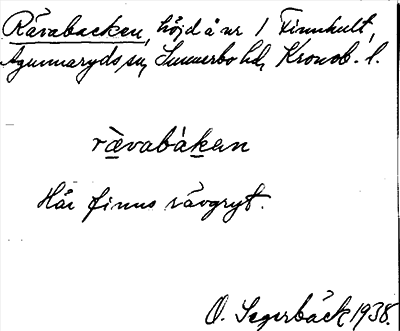 Rävabacken, höjd å nr 1 Finnhult,
Agunnaryds sn, Sunnerbo hd, Kronob. l.
rävabákan
Här finns rävgryt.
O. Segerbäck 1938.